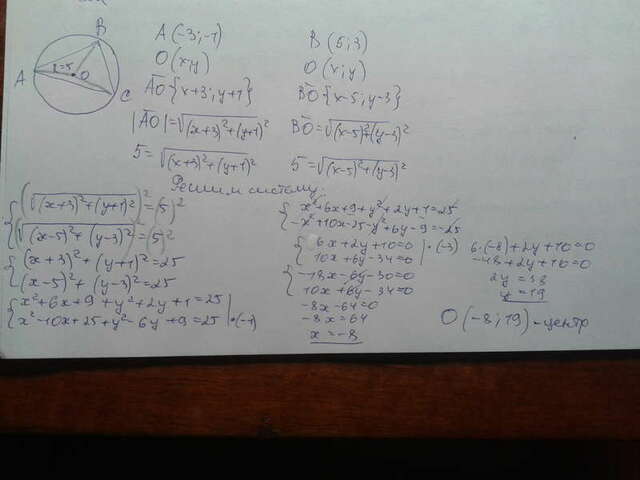 B
A
r=5
O
C
A (-3;-1)
O (x;y)
AO {x+3; y+1}
|AO| = √(x+3)²+(y+1)²
5 = √(x+3)²+(y+1)²
B (5;3)
O (x;y)
BO {x-5; y-3}
BO = √(x-5)²+(y-3)²
5 = √(x-5)²+(y-3)²
Решим систему:
{ (√(x+3)²+(y+1)²)² = (5)²
(√(x-5)²+(y-3)²)² = (5)²
{ (x+3)²+(y+1)² = 25
(x-5)²+(y-3)² = 25
{ x²+6x+9+y²+2y+1=25
x²-10x+25+y²-6y+9=25 | ·(-1)
{ x²+6x+9+y²+2y+1=25
-x²+10x-25-y²+6y-9=-25
{ 6x+2y+10=0 | ·(-3)
10x+6y-34=0
{ -18x-6y-30=0
10x+6y-34=0
-8x-64=0
-8x=64
x=-8
6·(-8)+2y+10=0
-48+2y+10=0
2y=38
y=19
O (-8;19) - центр